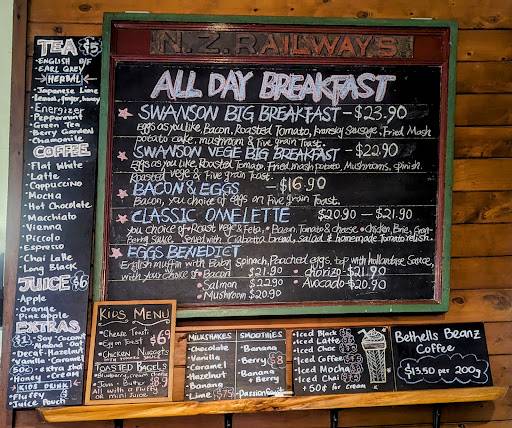 TEA $5
• ENGLISH B/F
• EARL GREY
HERBAL
• Japanese Lime
• Lemon, ginger, honey
• Energizer
• Peppermint
• Green Tea
• Berry Garden
• Chamomile
COFFEE
• Flat White
• Latte
• Cappuccino
• Mocha
• Hot Chocolate
• Macchiato
• Vienna
• Piccolo
• Espresso
• Chai Latte
• Long Black
JUICE $6
• Apple
• Orange
• Pineapple
EXTRAS
$1 • Soy • Coconut
• Almond • Oat
• Decaf • Hazelnut
• Vanilla • Caramel
50c • extra shot
• Honey • Cream
KIDS DRINK
• Fluffy
• Juice Pouch
N.Z.RAILWAYS
ALL DAY BREAKFAST
SWANSON BIG BREAKFAST - $23.90
Eggs as you like, Bacon, Roasted Tomato, Kransky Sausage, Fried Mash
Potato cake, mushroom & Five grain Toast.
SWANSON VEGE BIG BREAKFAST - $22.90
Eggs as you like, Roasted Tomato, Fried mash potato, Mushrooms, spinish,
Roasted vege & Five grain Toast.
BACON & EGGS - $16.90
Bacon, you choice of eggs on Five grain Toast.
CLASSIC OMELETTE $20.90 - $21.90
you choice of • Roast Vege & Feta, • Bacon, Tomato & cheese • Chicken, Brie, Cran-
Berry Sauce. Served with Ciabatta bread, Salad & homemade Tomato relish.
EGGS BENEDICT
English muffin with Baby spinach, Poached eggs, top with hollandaise Sauce,
with your choice of • Bacon $21.90 • Chorizo $21.90
• Salmon $22.90 • Avocado $20.90
• Mushroom $20.90
KIDS MENU
• Cheese Toasti
• Egg on Toast $6.9
• Chicken Nuggets
TOASTED BAGELS
• Blueberry, cream cheese
• Jam & Butter $8.9
All with a fluffy
or mini Juice
MILKSHAKES
Chocolate
Vanilla
Caramel
Hazelnut
Banana
Lime
SMOOTHIES
• Banana
• Berry $8
• Banana
+ Berry
• Passion Fruit
• Iced Black
• Iced Latte
• Iced Choc
• Iced Coffee
• Iced Mocha
• Iced Chai
+ 50¢ for cream
Bethells Beanz
Coffee
$13.50 per 200g